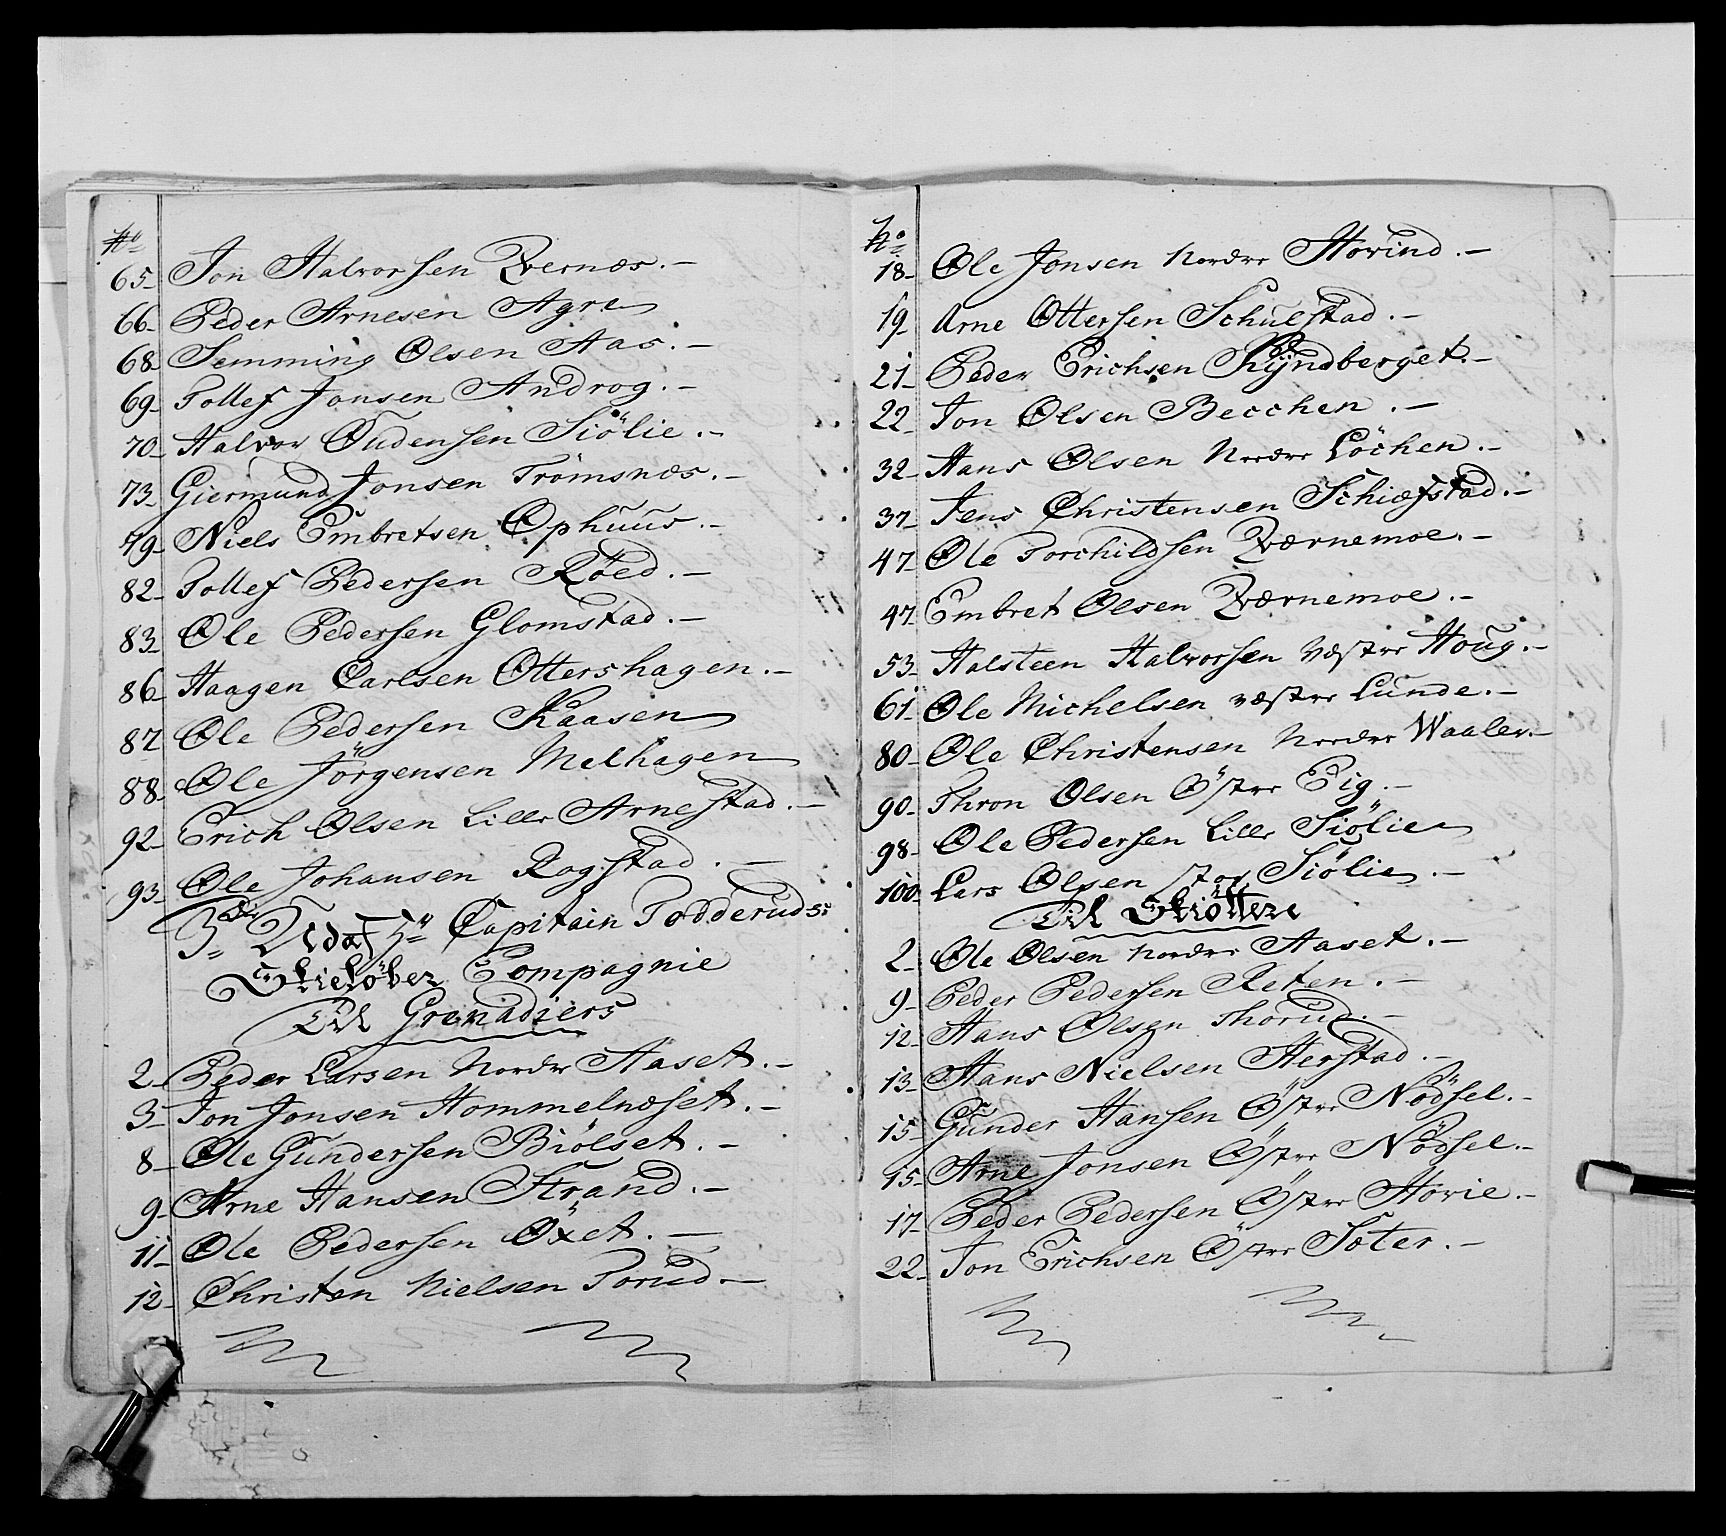 No
65 Jon Halvorsen Qvernæs.
66 Peder Arnesen Agre
68 Semming Olsen Aas.
69 Tollef Jonsen Androg.
70 Halvor Oudensen Siölie.
73 Giermund Jonsen Trömsnæs.
79 Niels Embretsen Ophuus.
82 Tollef Pedersen Röed.
83 Ole Pedersen Glomstad.
86 Haagen Carlsen Ottershagen.
87 Ole Pedersen Kaasen
88 Ole Jörgensen Melhagen
92 Erich Olsen Lille Arnestad.
93 Ole Johansen Rogstad.
3. Af Capitain Todderuds
Skielöber Compagnie
Til Grenadiers
2 Peder Larsen Nordre Aaset.
3 Jon Jonsen Hommelnæset.
8 Ole Gundersen Biölset.
9 Arne Hansen Strand.
11 Ole Pedersen Öxet.
12 Christen Nielsen Torud
No
18 Ole Jonsen Nordre Hovind.
19 Arne Ottersen Schulstad.
21 Peder Erichsen Kyndberget.
22 Jon Olsen Becchen.
32 Hans Olsen Nordre Löchen.
37 Jens Christensen Schiæfstad.
47 Ole Torchildsen Qværnemoe.
47 Embret Olsen Qværnemoe.
53 Halsteen Halvorsen Væstre Houg.
61 Ole Michelsen væstre Lunde.
80 Ole Christensen Nordre Waaler.
90 Thron Olsen Östre Eig.
98 Ole Pedersen Lille Siölie
100 Lars Olsen stor Siölie.
Til Skiöttere
2 Ole Olsen Nordre Aaset.
9 Peder Pedersen Reten.
12 Hans Olsen Thorud.
13 Hans Nielsen Herstad.
15 Gunder Hansen Östre Nödsel.
15 Arne Jonsen Östre Nödsel.
17 Peder Pedersen Östre Hovie.
22 Jon Erichsen Östre Sæter.